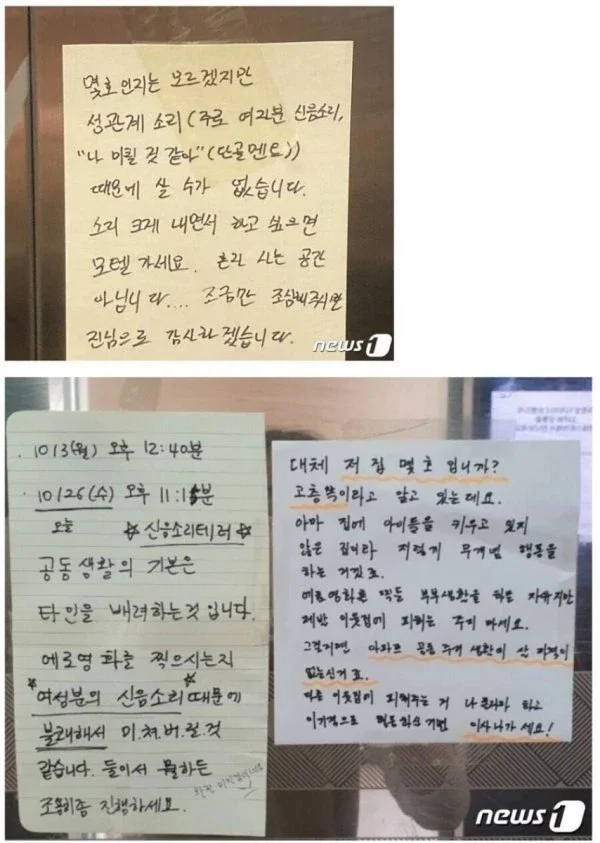 몇호인지는 모르겠지만
성관계 소리 (주로 여자분 신음소리,
"나 미칠 것 같아" (단골멘트))
때문에 살 수가 없습니다.
소리 크게 내면서 하고 싶으면
모텔 가세요. 혼자 사는 공간
아닙니다.... 조금만 조심해주시면
진심으로 감사하겠습니다.
news1
. 10/3(월) 오후 12:40분
. 10/26(수) 오후 11:15분
오늘 ☆신음소리테러☆
공동생활의 기본은
타인을 배려하는것 입니다.
에로영화를 찍으시는지
*여성분의 신음소리* 때문에
불쾌해서 미.쳐.버.릴.것
같습니다. 둘이서 뭘하든
조용히좀 진행하세요.
대체 저 집 몇호 입니까?
고층쪽이라고 알고 있는데요.
아마 집에 아이들을 키우고 있지
않은 집이라 저렇게 무개념 행동을
하는 거겠죠.
에로영화를 찍든 부부생활을 하든 자유지만
제발 이웃집에 피해는 주지 마세요.
그럴거면 아파트 공동 주거 생활에 살 자격이
없는신거죠.
다른 이웃집에 피해주는 거 나 몰라라 하고
이기적으로 행동하실거면 이사나가세요!
news1